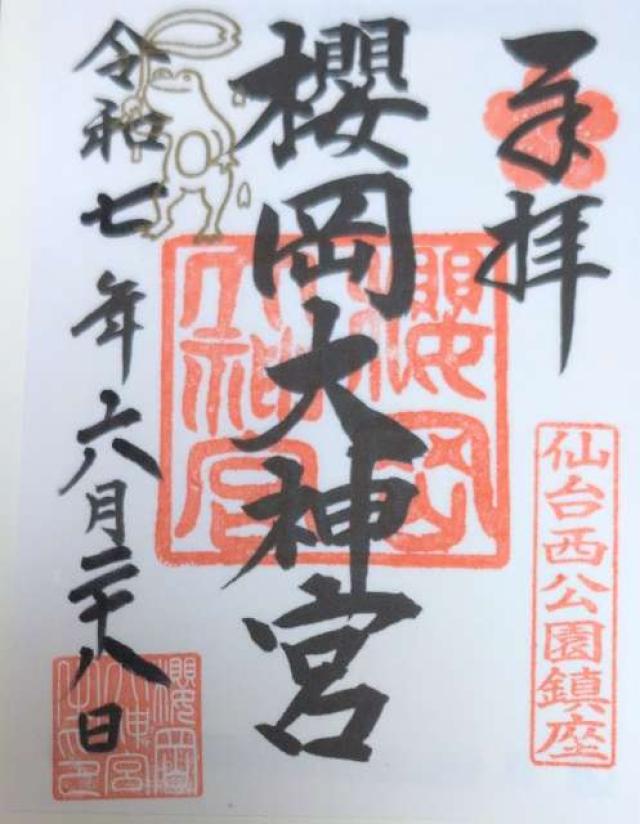 奉拝
仙台西公園鎮座
櫻岡大神宮
櫻岡
大神宮
令和七年六月二十八日
櫻岡
大神宮